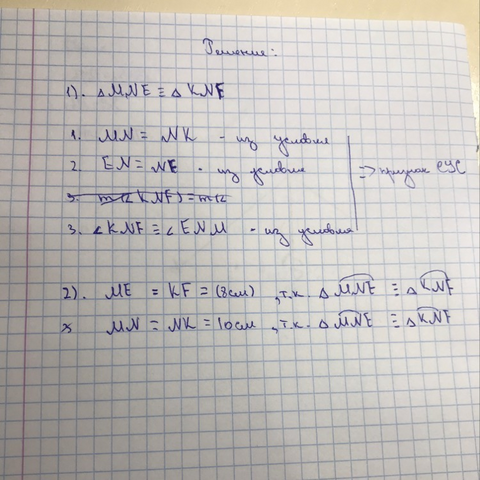 Решение:
1). △MNE ≡ △KNF
1. MN = NK - из условия
2. EN = NF - из условия
3. m(∠KNF) = m(∠
3. ∠KNF ≡ ∠ENM - из условия
⇒ признак СУС
2). ME = KF = (8см), т.к. △MNE ≡ △KNF
MN = NK = 10см, т.к. △MNE ≡ △KNF